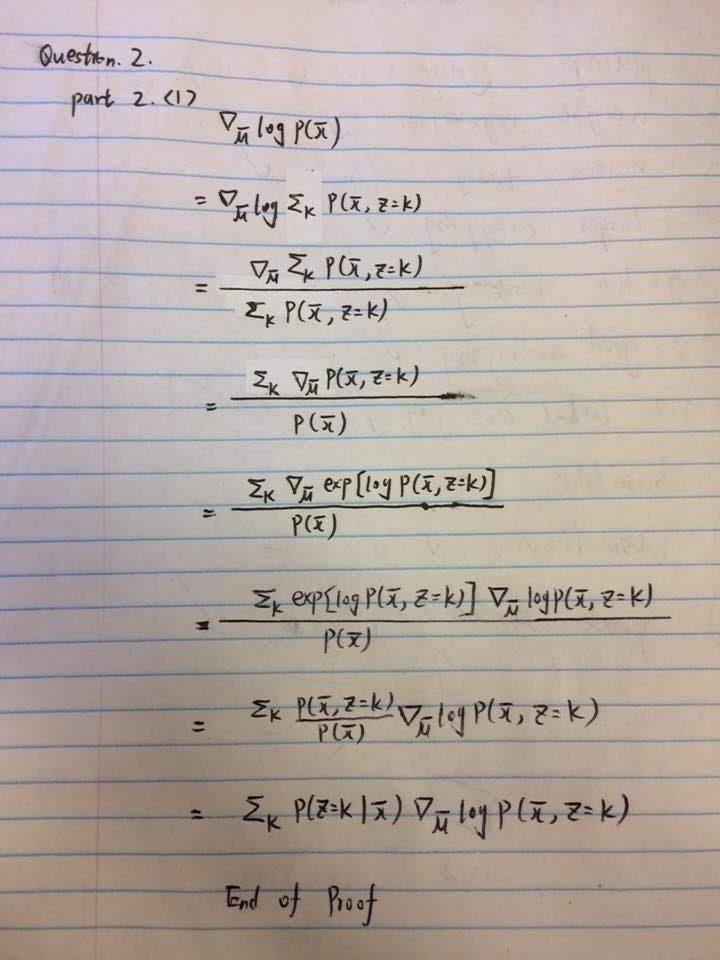 Question. 2.
part 2. (1)
∇_μ̄ log P(x̄)
= ∇_μ̄ log Σ_K P(x̄, z=k)
= ∇_μ̄ Σ_K P(x̄, z=k) / Σ_K P(x̄, z=k)
= Σ_K ∇_μ̄ P(x̄, z=k) / P(x̄)
= Σ_K ∇_μ̄ exp[log P(x̄, z=k)] / P(x̄)
= Σ_K exp[log P(x̄, z=k)] ∇_μ̄ log P(x̄, z=k) / P(x̄)
= Σ_K P(x̄, z=k)/P(x̄) ∇_μ̄ log P(x̄, z=k)
= Σ_K P(z=k|x̄) ∇_μ̄ log P(x̄, z=k)
End of Proof